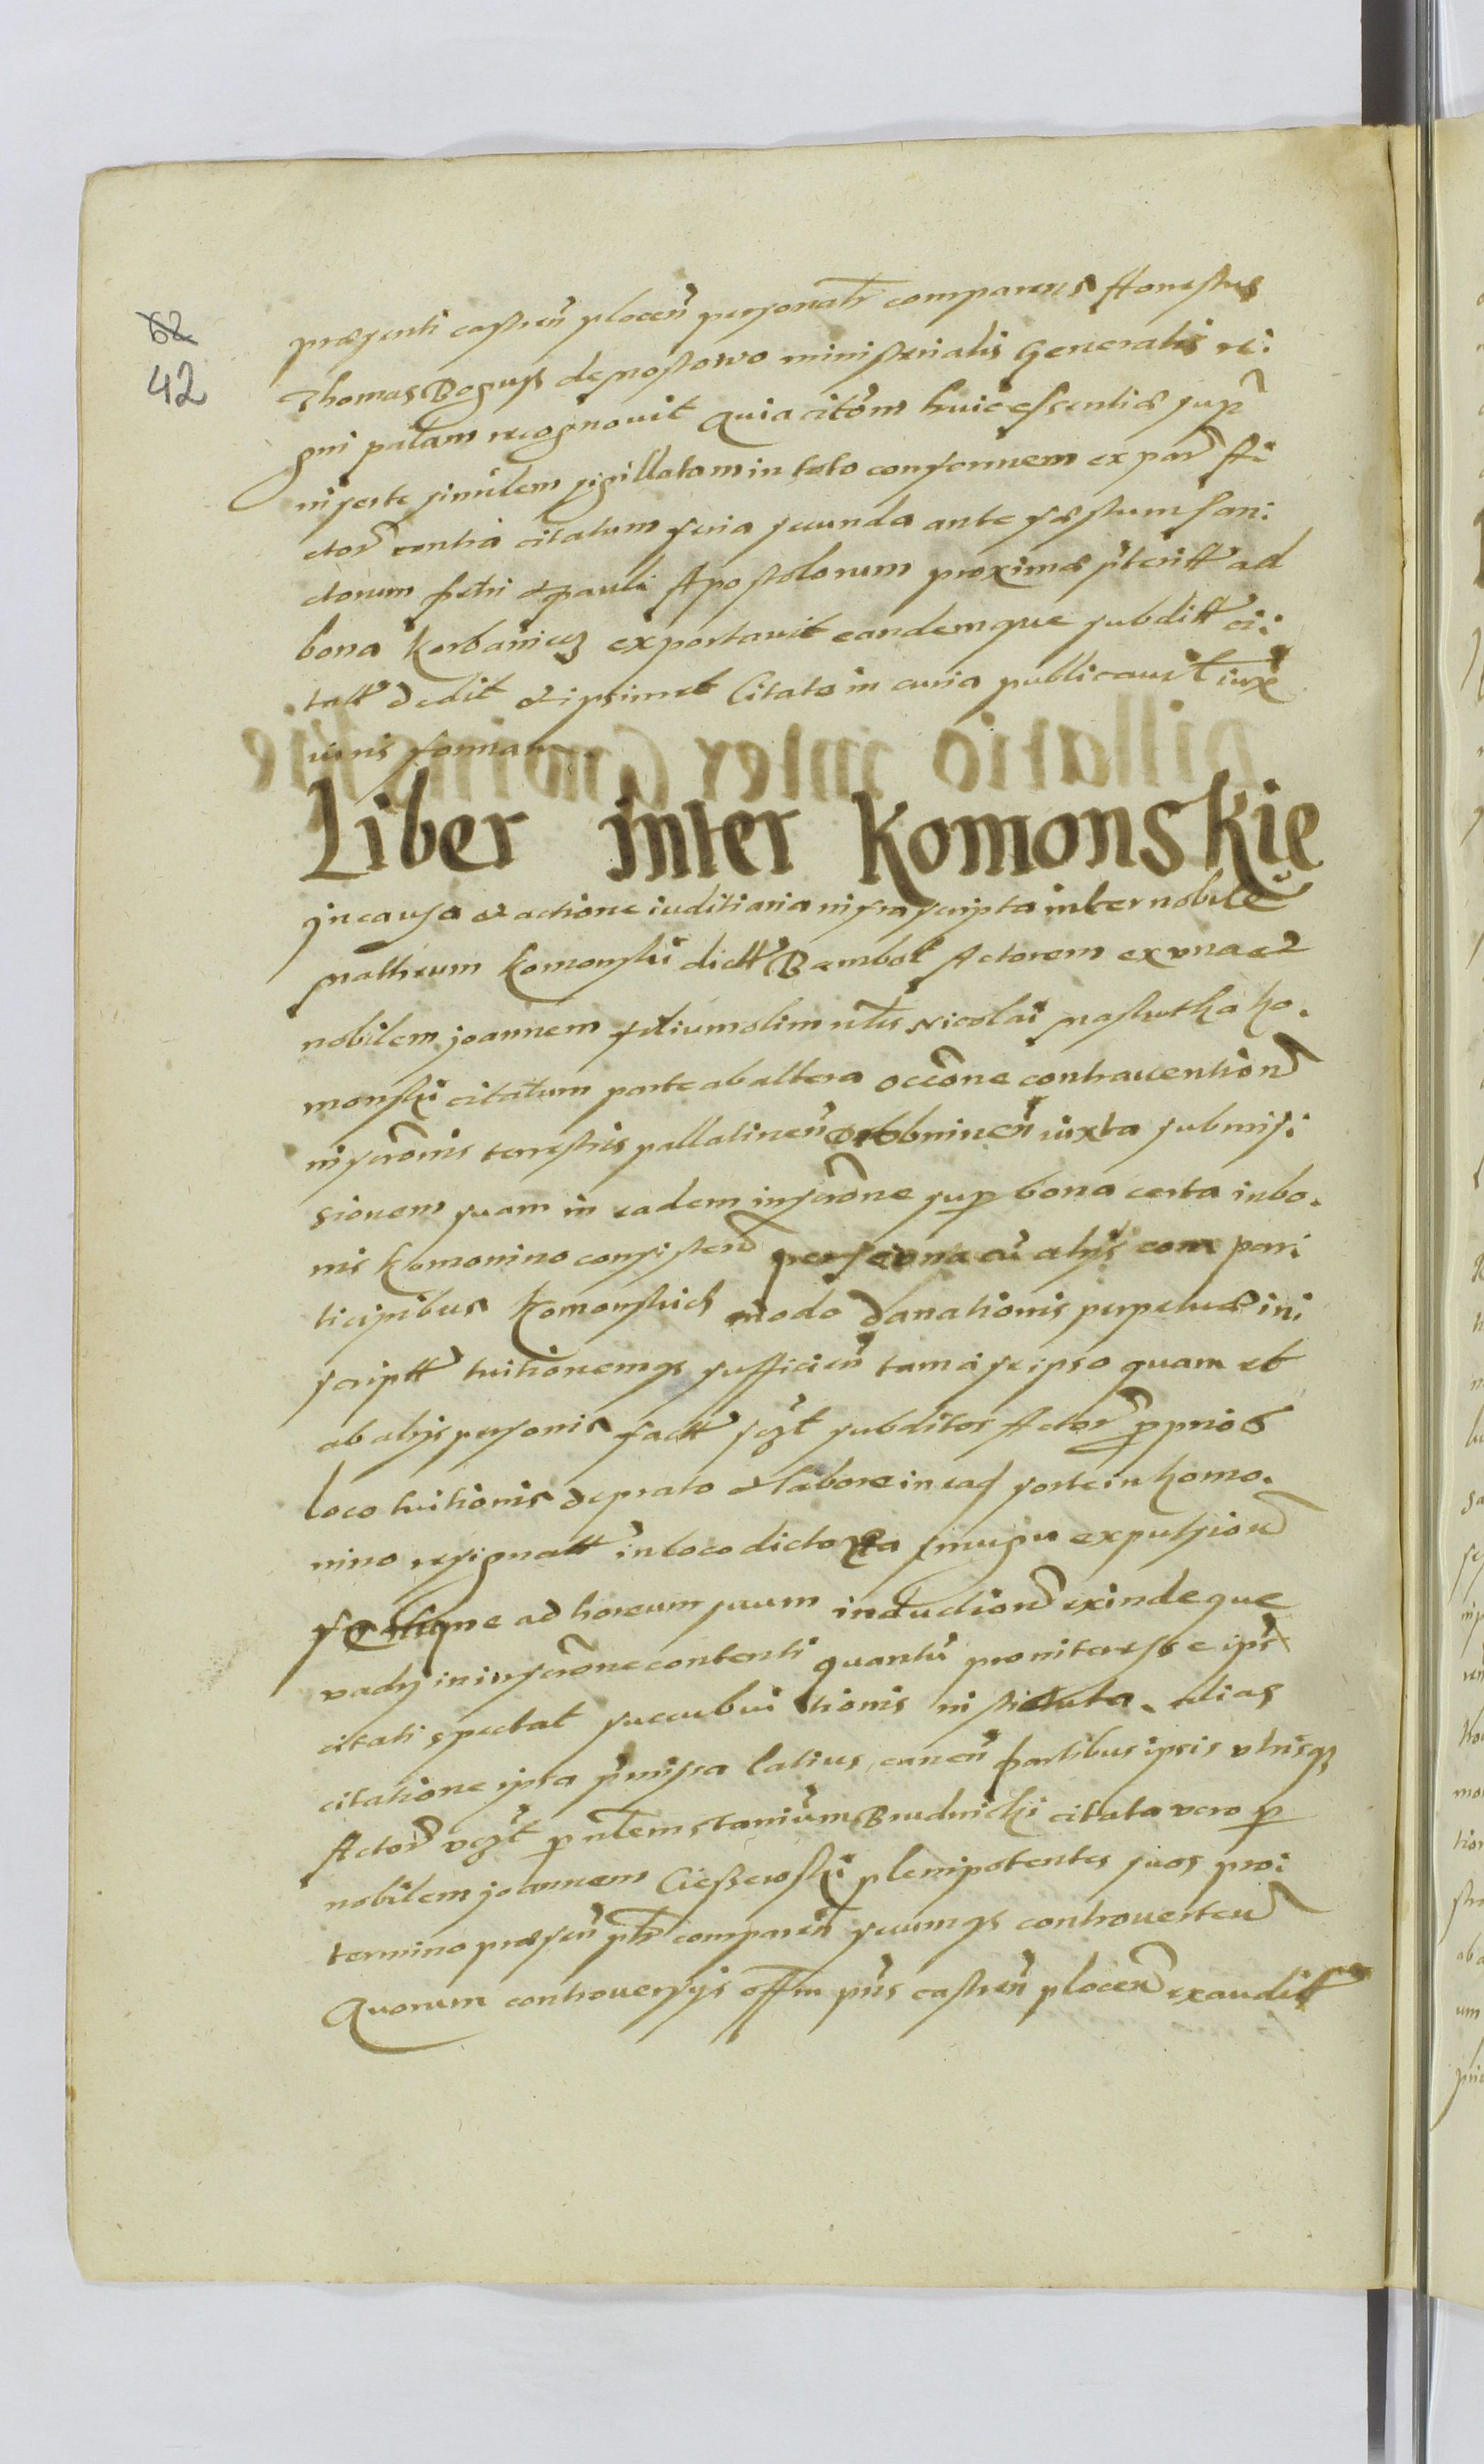 62
42
præsenti castren̄ plocen̄ personalr̄ comparens Honestus
Thomas Bogusz de nostowo ministerialis Generalis re:
gni palam recognovit Quia citōm huic essentiæ sup̄
inserte similem sigillatam in toto conformem ex par̄ A:
ctor̄ contra citatum feria secunda ante fæstum san:
ctorum Petri et pauli Apostolorum proximæ p̄teritt ad
bona korbanicz exportavit eandemque subditt ci:
tatt dedit et ipsimet Citato in curia publicavit iux̄
iuris formam
Liber inter Komonskie
In causa et actione iuditiaria infrascripta inter nobilē
Mathæum Komonski dictt Bembol Actorem ex una et
nobilem joannem filium olim nlis Nicolai pastutka ko.
monski citatum parte ab altera occōne contraventiōn
inscrōnis terrestris pallatinen̄ iuxta submis:
sionem suam in eadem inscrōne sup bona certa in bo.
nis Komonino consisten̄ per se una cū alys com par:
ticipibus Komonskich modo donationis perpetuæ in:
scriptt tuitionemqs sufficien̄ tam a se ipso quam et
ab alys personis factt scꝫt subditos Actor̄ pprios
loco tuitionis de prato et labore in eaq sorte in Komo.
nino resignatt in loco dicto Za smugu expulsiōn
fœnique ad horeum suum inductiōn exindeque
vady in inscrōne contenti quantū pro interesse ipsi
citati spectat succubui tionis instituta. alias
citatione ipsa p̄missa latius canen̄ partibus ipsis utrisqꝫ
Actor̄ vcꝫt p nlem Stanium Brudnicki citata vero p
nobilem joannem Cieszewski plenipotentes suos pro:
termino præsen̄ plr̄ comparen̄ secumqs controverten̄
Quorum controversys offm pn̄s castren̄ plocen̄ exauditt